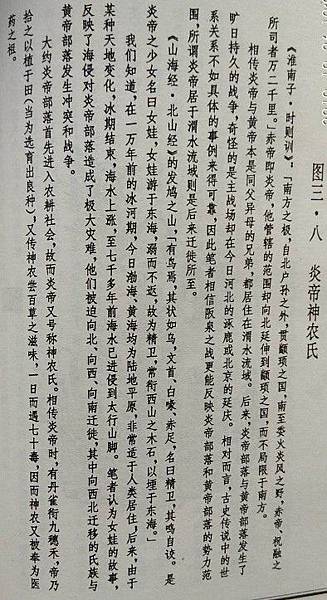 图三·八　炎帝神农氏
《淮南子·时则训》，「南方之极，自北户孙之外，贯颛顼之国，南至委火炎风之野，赤帝、祝融之
所司者万二千里。」赤帝即炎帝，他管辖的范围却向北延伸到颛顼之国，而不局限于南方。
相传炎帝与黄帝本是同父异母的兄弟，都居住在渭水流域。后来，炎帝部落与黄帝部落发生了
旷日持久的战争，奇怪的是主战场却在今日河北的涿鹿或北京的延庆。相对而言，古史传说中的世
系关系不如具体的事例来得可靠，因此笔者相信阪泉之战更能反映炎帝部落和黄帝部落的势力范
围，所谓炎帝居于渭水流域则是后来迁徙所至。
《山海经·北山经》的发鸠之山，「有鸟焉，其状如乌，文首、白喙、赤足，名曰精卫，其鸣自詨。是
炎帝之少女名曰女娃，女娃游于东海，溺而不返，故为精卫，常衔西山之木石，以堙于东海。」
我们知道，在一万年前的冰河期，今日渤海、黄海均为陆地平原，非常适于人类居住，后来，由于
某种天地变化，冰期结束，海水上涨，至七千多年前海水已进侵到太行山脚。笔者认为女娃的故事，
反映了海侵对炎帝部落造成了极大灾难，他们被迫向北、向西、向南迁徙，其中向西北迁移的氏族与
黄帝部落发生冲突和战争。
大约炎帝部落首先进入农耕社会，故而炎帝又号称神农氏。相传炎帝时，有丹雀衔九穗禾，帝乃
拾之以植于田（当为选育出良种），又传神农尝百草之滋味，一日而遇七十毒，因而神农又被奉为医
药之祖。